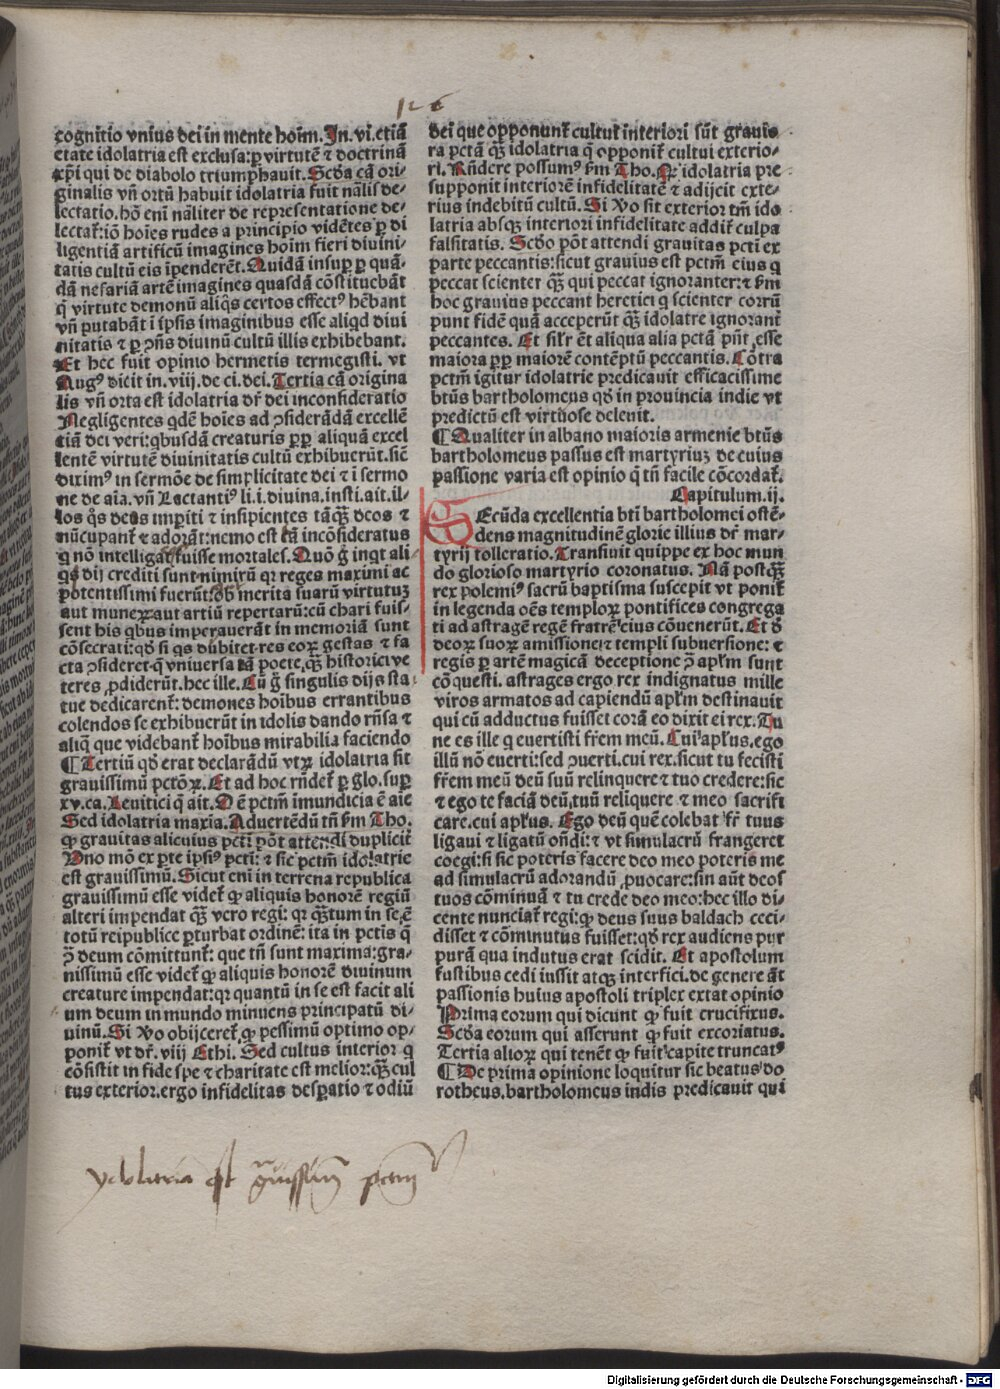 126
cognitio vnius dei in mente hoīm. In. vi. etiā
etate idolatria est exclusa: ꝑ virtutē ⁊ doctrinā
xp̄i qui de diabolo triumphauit. Scḋa cā ori-
ginalis vn̄ ortū habuit idolatria fuit nālis de-
lectatio. hō enī nāliter de representatione de-
lectat̄: iō hoīes rudes a principio vidētes ꝑ di
ligentiā artificū imagines hoīm fieri diuini-
tatis cultū eis īpenderēt. Quidā insuꝑ ꝑ quā-
dā nefariā artē imagines quasdā cōstituebāt
q̄ virtute demonū aliq̄s certos effectꝰ hēbant
vn̄ putabāt ī ip̄sis imaginibus esse aliqd diui
nitatis ⁊ ꝑ ꝯn̄s diuinū cultū illis exhibebant.
Et hec fuit opinio hermetis termegisti. vt
Augꝰ dicit in. viij. de ci. dei. Tertia cā origina
lis vn̄ orta est idolatria dr̄ dei inconsideratio
Negligentes qdē hoīes ad ꝯsiderādā excellē
tiā dei veri: qbusdā creaturis ꝓp̄ aliquā excel
lentē virtutē diuinitatis cultū exhibuerūt. sic̄
diximꝰ in sermōe de simplicitate dei ⁊ ī sermo
ne de aīa. vn̄ Lactantiꝰ li. i. diuina. insti. ait. il-
los q̄s deos imꝑiti ⁊ insipientes tāqꝫ deos ⁊
nūcupant̄ ⁊ adorāt: nemo est tā incōsideratus
q nō intelligat fuisse mortales. Quō ḡ inqt ali
qs dij crediti sunt nimirū qꝛ reges maximi ac
potentissimi fuerūt: ob merita suarū virtutuꝫ
aut muneꝝ aut artiū repertarū: cū chari fuis-
sent his qbus imperauerāt in memoriā sunt
cōsecrati: qḋ si qs dubitet res eoꝝ gestas ⁊ fa
cta ꝯsideret q̄ vniuersa tā poete, qꝫ historici ve
teres ꝓdiderūt. hec ille. Cū ḡ singulis dijs sta-
tue dedicarent̄: demones hoībus errantibus
colendos se exhibuerūt in idolis dando rn̄sa ⁊
aliq̄ que videbant̄ hoībus mirabilia faciendo
¶ Tertiū qḋ erat declarādū vtꝝ idolatria sit
grauissimū pctōꝝ. Et ad hoc rn̄det̄ ꝑ glo. suꝑ
xv. ca. Leuitici q̄ ait. Oē pctm̄ īmundicia ē aīe
Sed idolatria maxīa. Aduertēdū tn̄ ẜm Tho.
ꝙ grauitas alicuius pcti pōt attendi dupliciť
Uno mō ex ꝑte ip̄siꝰ pcti: ⁊ sic pctm̄ idolatrie
est grauissimū. Sicut enī in terrena republica
grauissimū esse videt̄ ꝙ aliquis honorē regiū
alteri impendat qꝫ vero regi: qꝛ qꝫtum in se ē
totū reipublice ꝑturbat ordinē: ita in pctis q̄
ꝯ̄ deum cōmittunt̄: que tn̄ sunt maxima: gra-
uissimū esse videt̄ ꝙ aliquis honorē diuinum
creature impendat: qꝛ quantū in se est facit ali
um deum in mundo minuens principatū di-
uinū. Si vo obijceret̄ ꝙ pessimū optimo op-
ponit̄ vt dr̄. viij Ethi. Sed cultus interior q
cōsistit in fide spe ⁊ charitate est melior: qꝫ cul
tus exterior. ergo infidelitas desꝑatio ⁊ odiū
dei que opponunt̄ cultui interiori sūt grauio
ra pctā qꝫ idolatria q̄ opponit̄ cultui exterio-
ri. Rn̄dere possumꝰ ẜm Tho. Qꝛ idolatria pre
supponit interiorē infidelitatē ⁊ adijcit exte-
rius indebitū cultū. Si vo sit exterior tm̄ ido
latria absqꝫ interiori infidelitate addit̄ culpa
falsitatis. Scḋo pōt attendi grauitas pcti ex
parte peccantis: sicut grauius est pctm̄ eius q
peccat scienter qꝫ qui peccat ignoranter: ⁊ ẜm
hoc grauius peccant heretici q scienter corrū
punt fidē quā acceperūt qꝫ idolatre ignorant̄
peccantes. Et silr̄ ēt aliqua alia pctā pn̄t esse
maiora ꝓp̄ maiorē contēptū peccantis. Cōtra
pctm̄ igitur idolatrie predicauit efficacissime
btūs bartholomeus qḋ in prouincia indie vt
predictū est virtuose deleuit.
¶ Qualiter in albano maioris armenie btūs
bartholomeus passus est martyriuꝫ de cuius
passione varia est opinio q̄ tn̄ facile cōcordat̄.
Capitulum. ij.
SEcūda excellentia bti bartholomei ostē-
dens magnitudinē glorie illius dr̄ mar-
tyrij tolleratio. Transiuit quippe ex hoc mun
do glorioso martyrio coronatus. Nā postqꝫ
rex polemiꝰ sacrū baptisma suscepit vt ponit̄
in legenda oēs temploꝝ pontifices congrega
ti ad astragē regē fratrē eius cōuenerūt. Et ḋ
deoꝝ suoꝝ amissione ⁊ templi subuersione: ⁊
regis ꝑ artē magicā deceptione ꝯ̄ apl̄m sunt
cōquesti. astrages ergo rex indignatus mille
viros armatos ad capiendū apl̄m destinauit
qui cū adductus fuisset corā eo dixit ei rex. Tu
ne es ille q euertisti fr̄em meū. Cui apl̄us. ego
illū nō euerti: sed ꝯuerti. cui rex. sicut tu fecisti
fr̄em meū deū suū relinquere ⁊ tuo credere: sic
⁊ ego te faciā deū tuū reliquere ⁊ meo sacrifi
care. cui apl̄us. Ego deū quē colebat fr̄ tuus
ligaui ⁊ ligatū ondi: ⁊ vt simulacrū frangeret
coegi: si sic poteris facere deo meo poteris me
ad simulacrū adorandū ꝓuocare: sin aūt deos
tuos cōminuā ⁊ tu crede deo meo: hec illo di-
cente nunciat̄ regi: ꝙ deus suus baldach ceci-
disset ⁊ cōminutus fuisset: qḋ rex audiens pur
purā qua indutus erat scidit. Et apostolum
fustibus cedi iussit atqꝫ interfici. de genere āt
passionis huius apostoli triplex extat opinio
Prima eorum qui dicunt ꝙ fuit crucifixus.
Scḋa eorum qui asserunt ꝙ fuit excoriatus.
Tertia alioꝝ qui tenēt ꝙ fuit capite truncatꝰ
¶ De prima opinione loquitur sic beatus do
rotheus. bartholomeus indis predicauit qui
ydolatria est grauissimū pctm̄
Digitalisierung gefördert durch die Deutsche Forschungsgemeinschaft - DFG